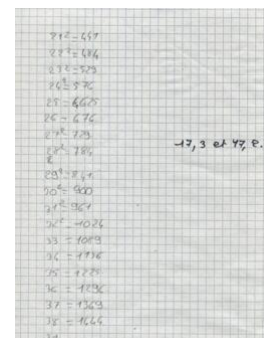 21² = 441
22² = 484
23² = 529
24² = 576
25 = 625
26 = 676
27² = 729
28² = 784
29² = 841
30² = 900
31² = 961
32² = 1024
33 = 1089
34 = 1156
35 = 1225
36 = 1296
37 = 1369
38 = 1444
-17, 3 et 47, 2.